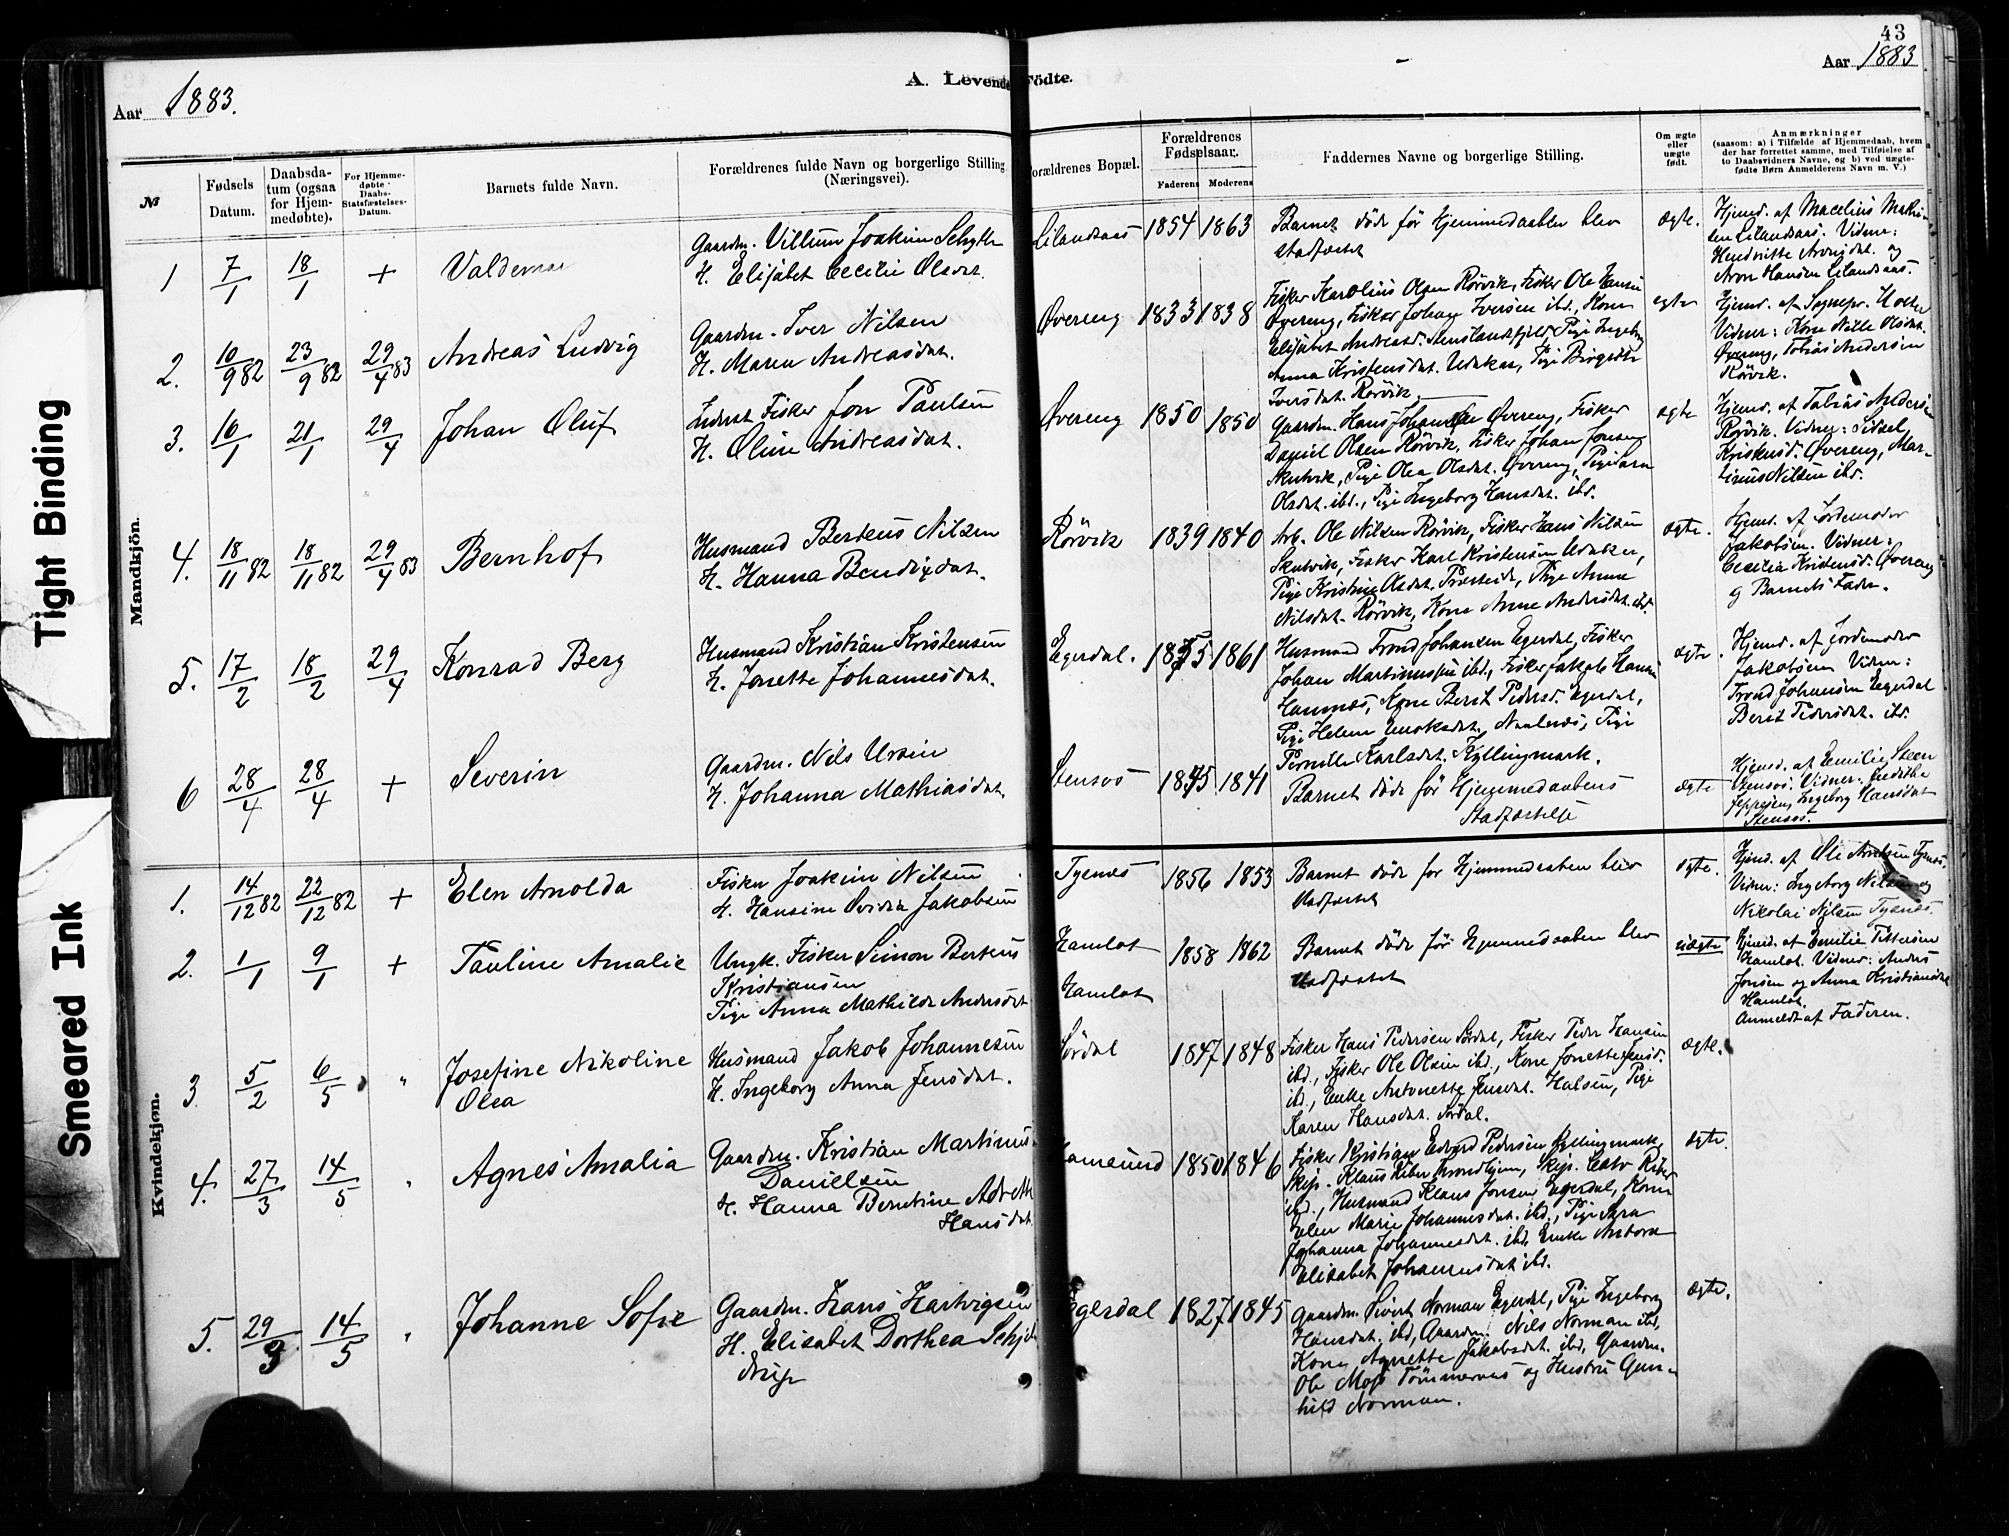 43
Aar 1883.
A. Levende Födte.
Aar 1883
№
Fødsels Datum.
Daabsdatum (ogsaa for Hjemmedøbte).
For Hjemmedøbte Daabs-Statsfæstelses-Datum.
Barnets fulde Navn.
Forældrenes fulde Navn og borgerlige Stilling (Næringsvei).
Forældrenes Bopæl.
Forældrenes Fødselsaar.
Faderens Moderens
Faddernes Navne og borgerlige Stilling.
Om ægte eller uægte født.
Anmærkninger
(saasom: a) i Tilfælde af Hjemmedaab, hvem
der har forrettet samme, med Tilføielse af
to Daabsvidners Navne, og b) ved uægte-
fødte Børn Anmelderens Navn m. V.)
Tight Binding
Smeared Ink
Mandkjön.
1 7/1 18/1 + Valdemar
Gaardm. Villum Joakim Schytte
H. Elisabet Cecilie Olsdat.
Lilandsaas 1854 1863
Barnet døde før Hjemmedaaben blev
stadfæstet
ægte.
Hjemd. af Macelius Mathi-
sen Lilandsaas. Vidner:
Hendritte Arnigdat. og
Aron Hansen Lilandsaas.
2. 10/9 82 23/9 82 29/4 83 Andreas Ludvig
Gaardm. Iver Nilsen
H. Maren Andreasdat.
Øvereng 1833 1838
Fisker Karolius Olsen Rørvik, Fisker Ole Hansen
Øvereng, Fisker Johan Iversen ibd., Kone
Elisabet Andreasd. Stenslandsfjeld, Pige Ingeborg
Anna Kristensdat. Udaker, Pige Birgitte
Iversdat. Rørvik.
egte
Hjemd. af Sognepr. Holter
Vidner: Kone Nille Olsdat.
Øvereng, Tobias Andersen
Rørvik.
3. 16/1 21/1 29/4 Johan Oluf
Inderst Fisker Jon Paulsen
H. Oline Andreasdat.
Øvereng 1850 1850
Gaardm. Hans Johansen Øvereng, Fisker
Daniel Olsen Rørvik, Fisker Johan Jonsen
Skutvik, Pige Olea Olsdat. Øvereng, Pige Sara
Olsdat. ibd., Pige Ingeborg Hansdat. ibd.
ægte
Hjemd. af Tobias Andersen
Rørvik. Vidner: Sidsel
Kristensd. Øvereng, Mar-
tinus Nilsen ibd.
4. 18/11 82 18/11 82 29/4 83 Bernhof
Husmand Berteus Nilsen
H. Hanna Bendixdat.
Rørvik 1839 1840
Arb. Ole Nilsen Rørvik, Fisker Hans Nilsen
Skutvik, Fisker Karl Kristensen Udaker,
Pige Kristine Olsdat. Presteide, Pige Anne
Nilsdat. Rørvik, Kone Anne Andersdat. ibd.
ægte.
Hjemd. af Jordemoder
Jakobsen. Vidner:
Cecilia Kristensd. Øvereng
og Barnets Fader.
5. 17/2 18/2 29/4 Konrad Berg
Husmand Kristian Kristensen
H. Jonette Johannesdat.
Egerdal. 1855 1861
Husmand Trond Johansen Egerdal, Fisker
Johan Martinussen ibd., Fisker Jakob Hansen
Hamnæs, Kone Berit Pedersd. Egerdal,
Pige Helene Enoksdat.
Pernille Karlsdat. Kyllingmark.
ægte.
Hjemd. af Jordemoder
Jakobsen Vidner:
Trond Johansen Egerdal
Berit Pedersdat. ibd.
6 28/4 28/4 + Severin
Gaardm. Nils Ursin
H. Johanna Mathiasdat.
Stensøs 1845 1841
Barnet døde før Hjemmedaabens
Stadfæstelse
ægte
Hjemd. af Emilie Steen
Stensøs. Vidner:
Jeppesen, Ingeborg Hansdat
Stensøs.
Kvindekjøn.
1. 14/12 82 22/12 82 + Elen Arnolda
Fisker Joakim Nilsen
H. Hansine Ovidia Jakobsen
Tysnes 1856 1853
Barnet døde før Hjemmedaaben blev
stadfæstet
egte.
Hjemd. af Ole Arntsen Tysnes.
Vidner: Ingeborg Nilsen og
Nikolai Nilsen Tysnes.
2. 1/1 9/1 + Pauline Amalie
Ungk. Fisker Simon Berteus
Kristiansen
Pige Anna Mathilde Andersdat
Hamlot
Hamlot
1858 1862
Barnet døde før Hjemmedaaben blev
stadfæstet
uægte
Hjemd. af Emilie Pettersen
Hamlot. Vidner: Anders
Jonsen og Anna Kristiansdat
Hamlot.
Anmeldt af Faderen.
3 5/2 6/5 " Josefine Nikoline
Olea
Husmand Jakob Johannesen
H. Ingeborg Anna Jensdat.
Sørdal 1847 1848
Fisker Hans Pedersen Sørdal, Fisker Peder Hansen
ibd., Fisker Ole Olsen ibd., Kone Jonette Jensd.
ibd., Enke Antonette Jensdat. Halsen, Pige
Karen Hansdat. Sørdal.
ægte.
4. 27/3 14/5 " Agnes Amalia
Gaardm. Kristian Martinus
Danielsen
H. Hanna Berntine
Hansdat
1850 1846
Fisker Kristian Edvard Pedersen Kyllingmark,
Skip. Klaus Riber Trondhjem, Skip. Riber
ibd., Husmand Klaus Jonsen Egerdal, Kone
Elen Marie Johannesdat. ibd., Pige Sara
Johanna Johannesdat. ibd, Enke
Elisabet Johannesdat ibd.
ægte.
5. 29/3 14/5 " Johanne Sofie
Gaardm. Hans Hartvigsen
H. Elisabet Dorthea Schjel-
drup
Egerdal 1827 1845
Gaardm. Sivert Norman Egerdal, Pige Ingeborg
Hansdat. ibd, Gaardm. Nils Norman ibd,
Kone Agnette Jakobsdat. ibd, Gaardm.
Ole Moje Tømmernes og Hustru Gun-
hild Norman.
ægte.